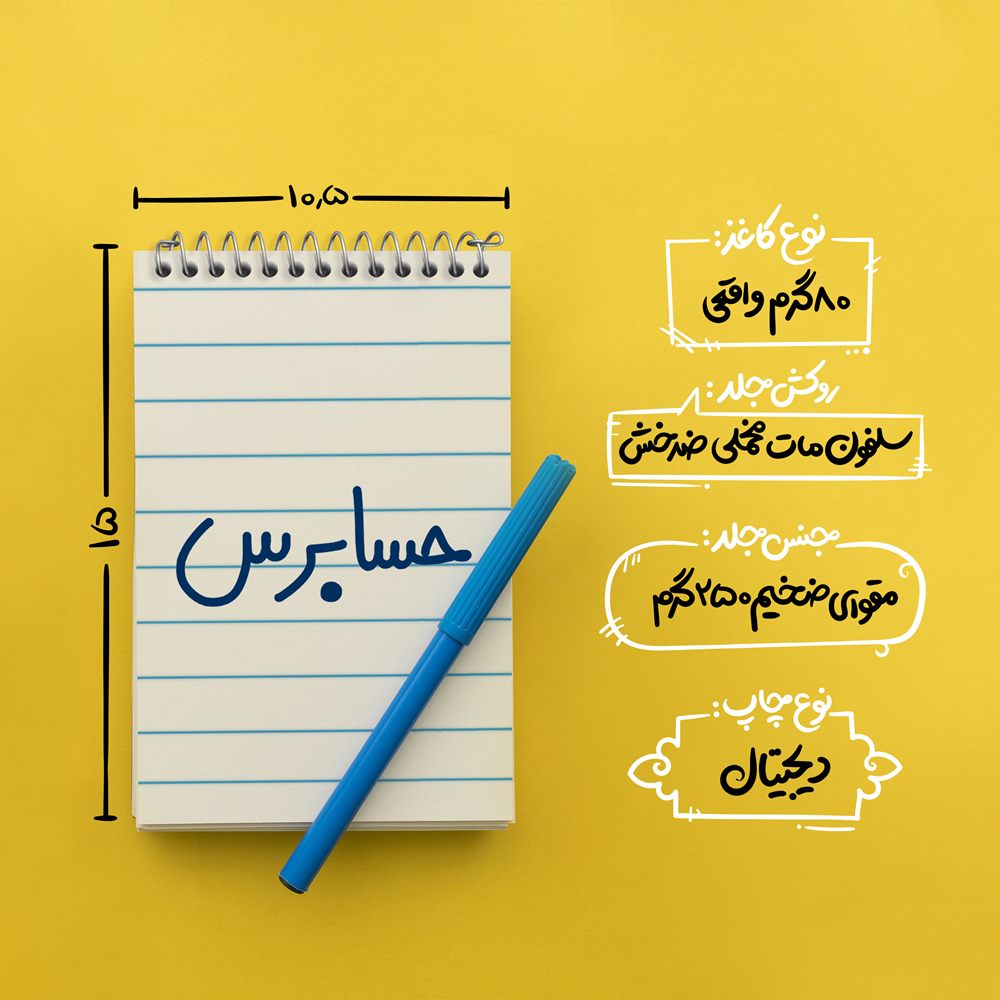 ۱۰٫۵
نوع کاغذ:
۸۰گرم واقعی
روکش جلد:
سلفون مات مخملی ضدخش
۱۵
حسابرس
جنس جلد:
مقوای ضخیم ۲۵۰گرم
نوع چاپ:
دیجیتال